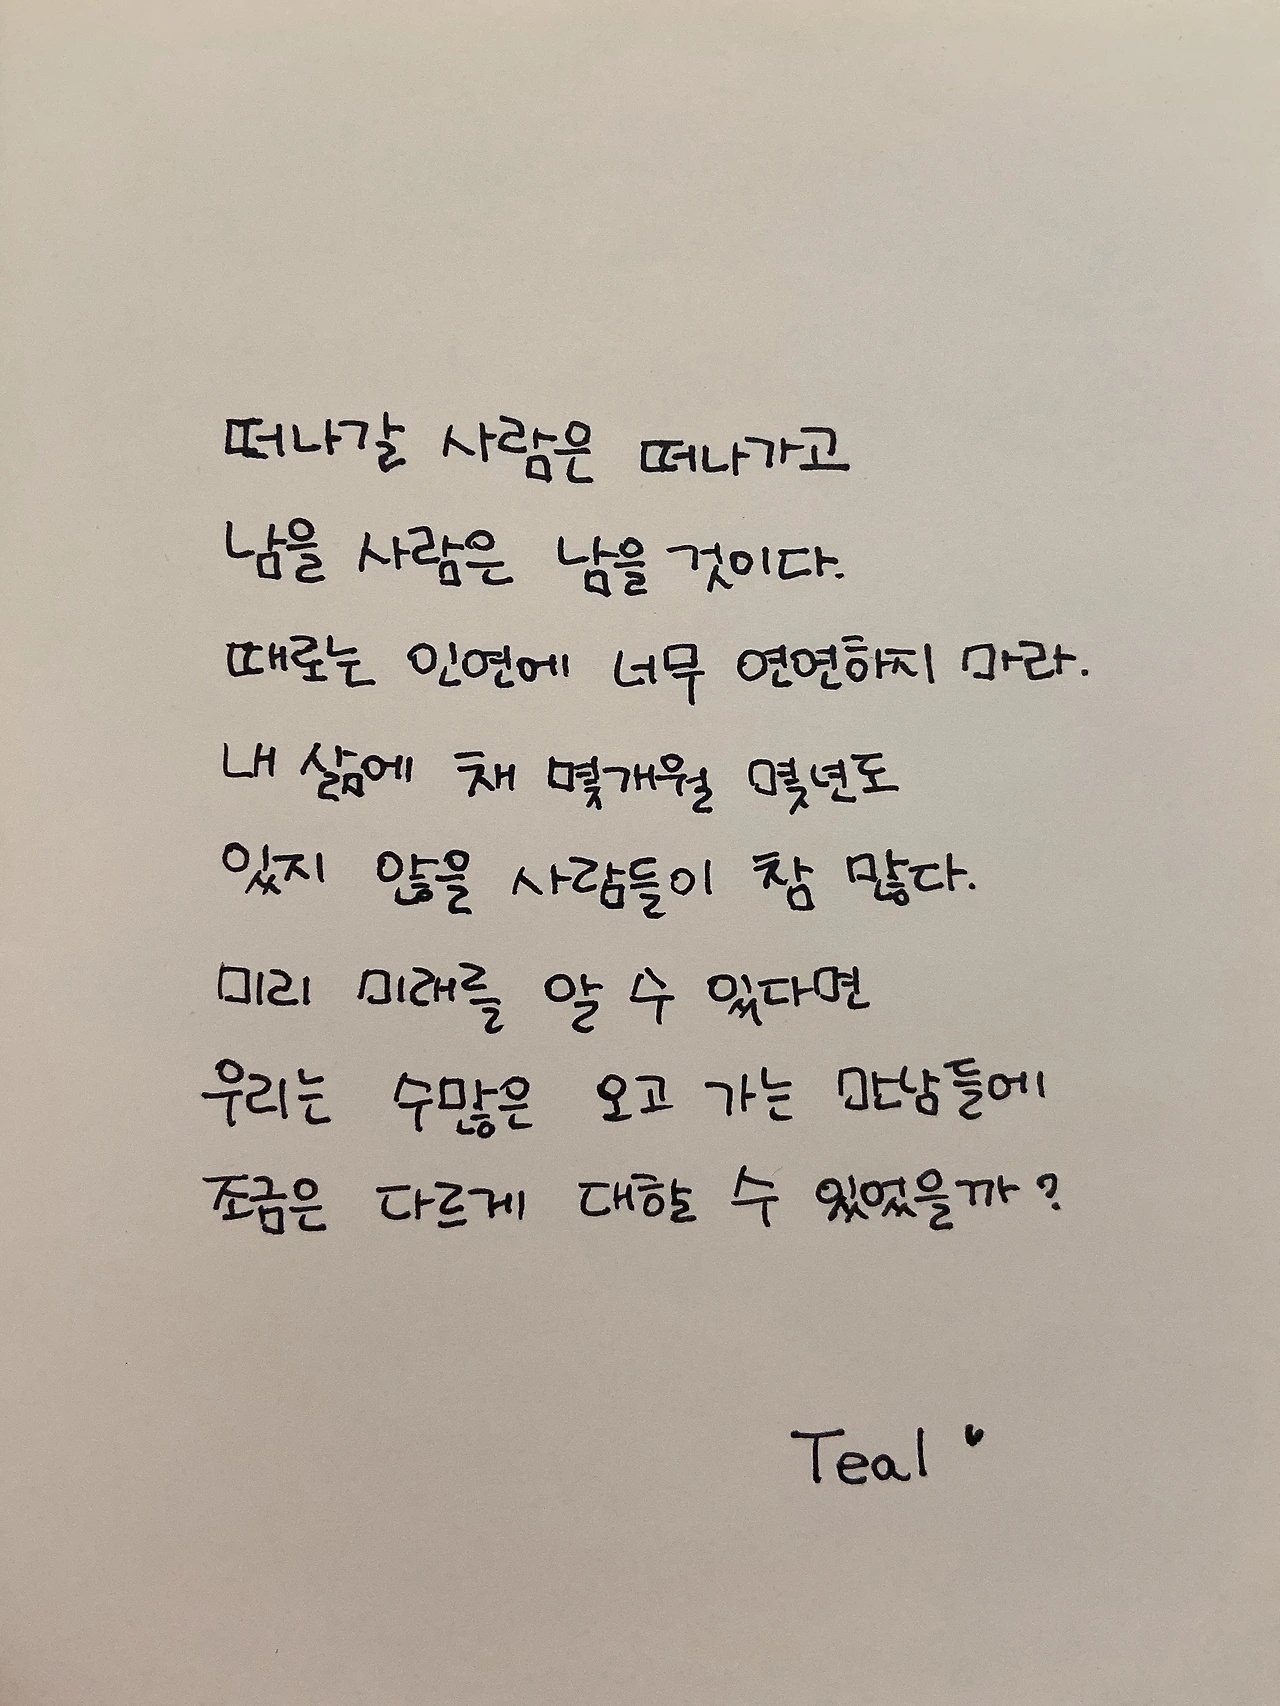 떠나갈 사람은 떠나가고
남을 사람은 남을 것이다.
때로는 인연에 너무 연연하지 마라.
내 삶에 채 몇개월 몇년도
있지 않을 사람들이 참 많다.
미리 미래를 알 수 있다면
우리는 수많은 오고 가는 만남들에
조금은 다르게 대할 수 있었을까?
Teal ♥